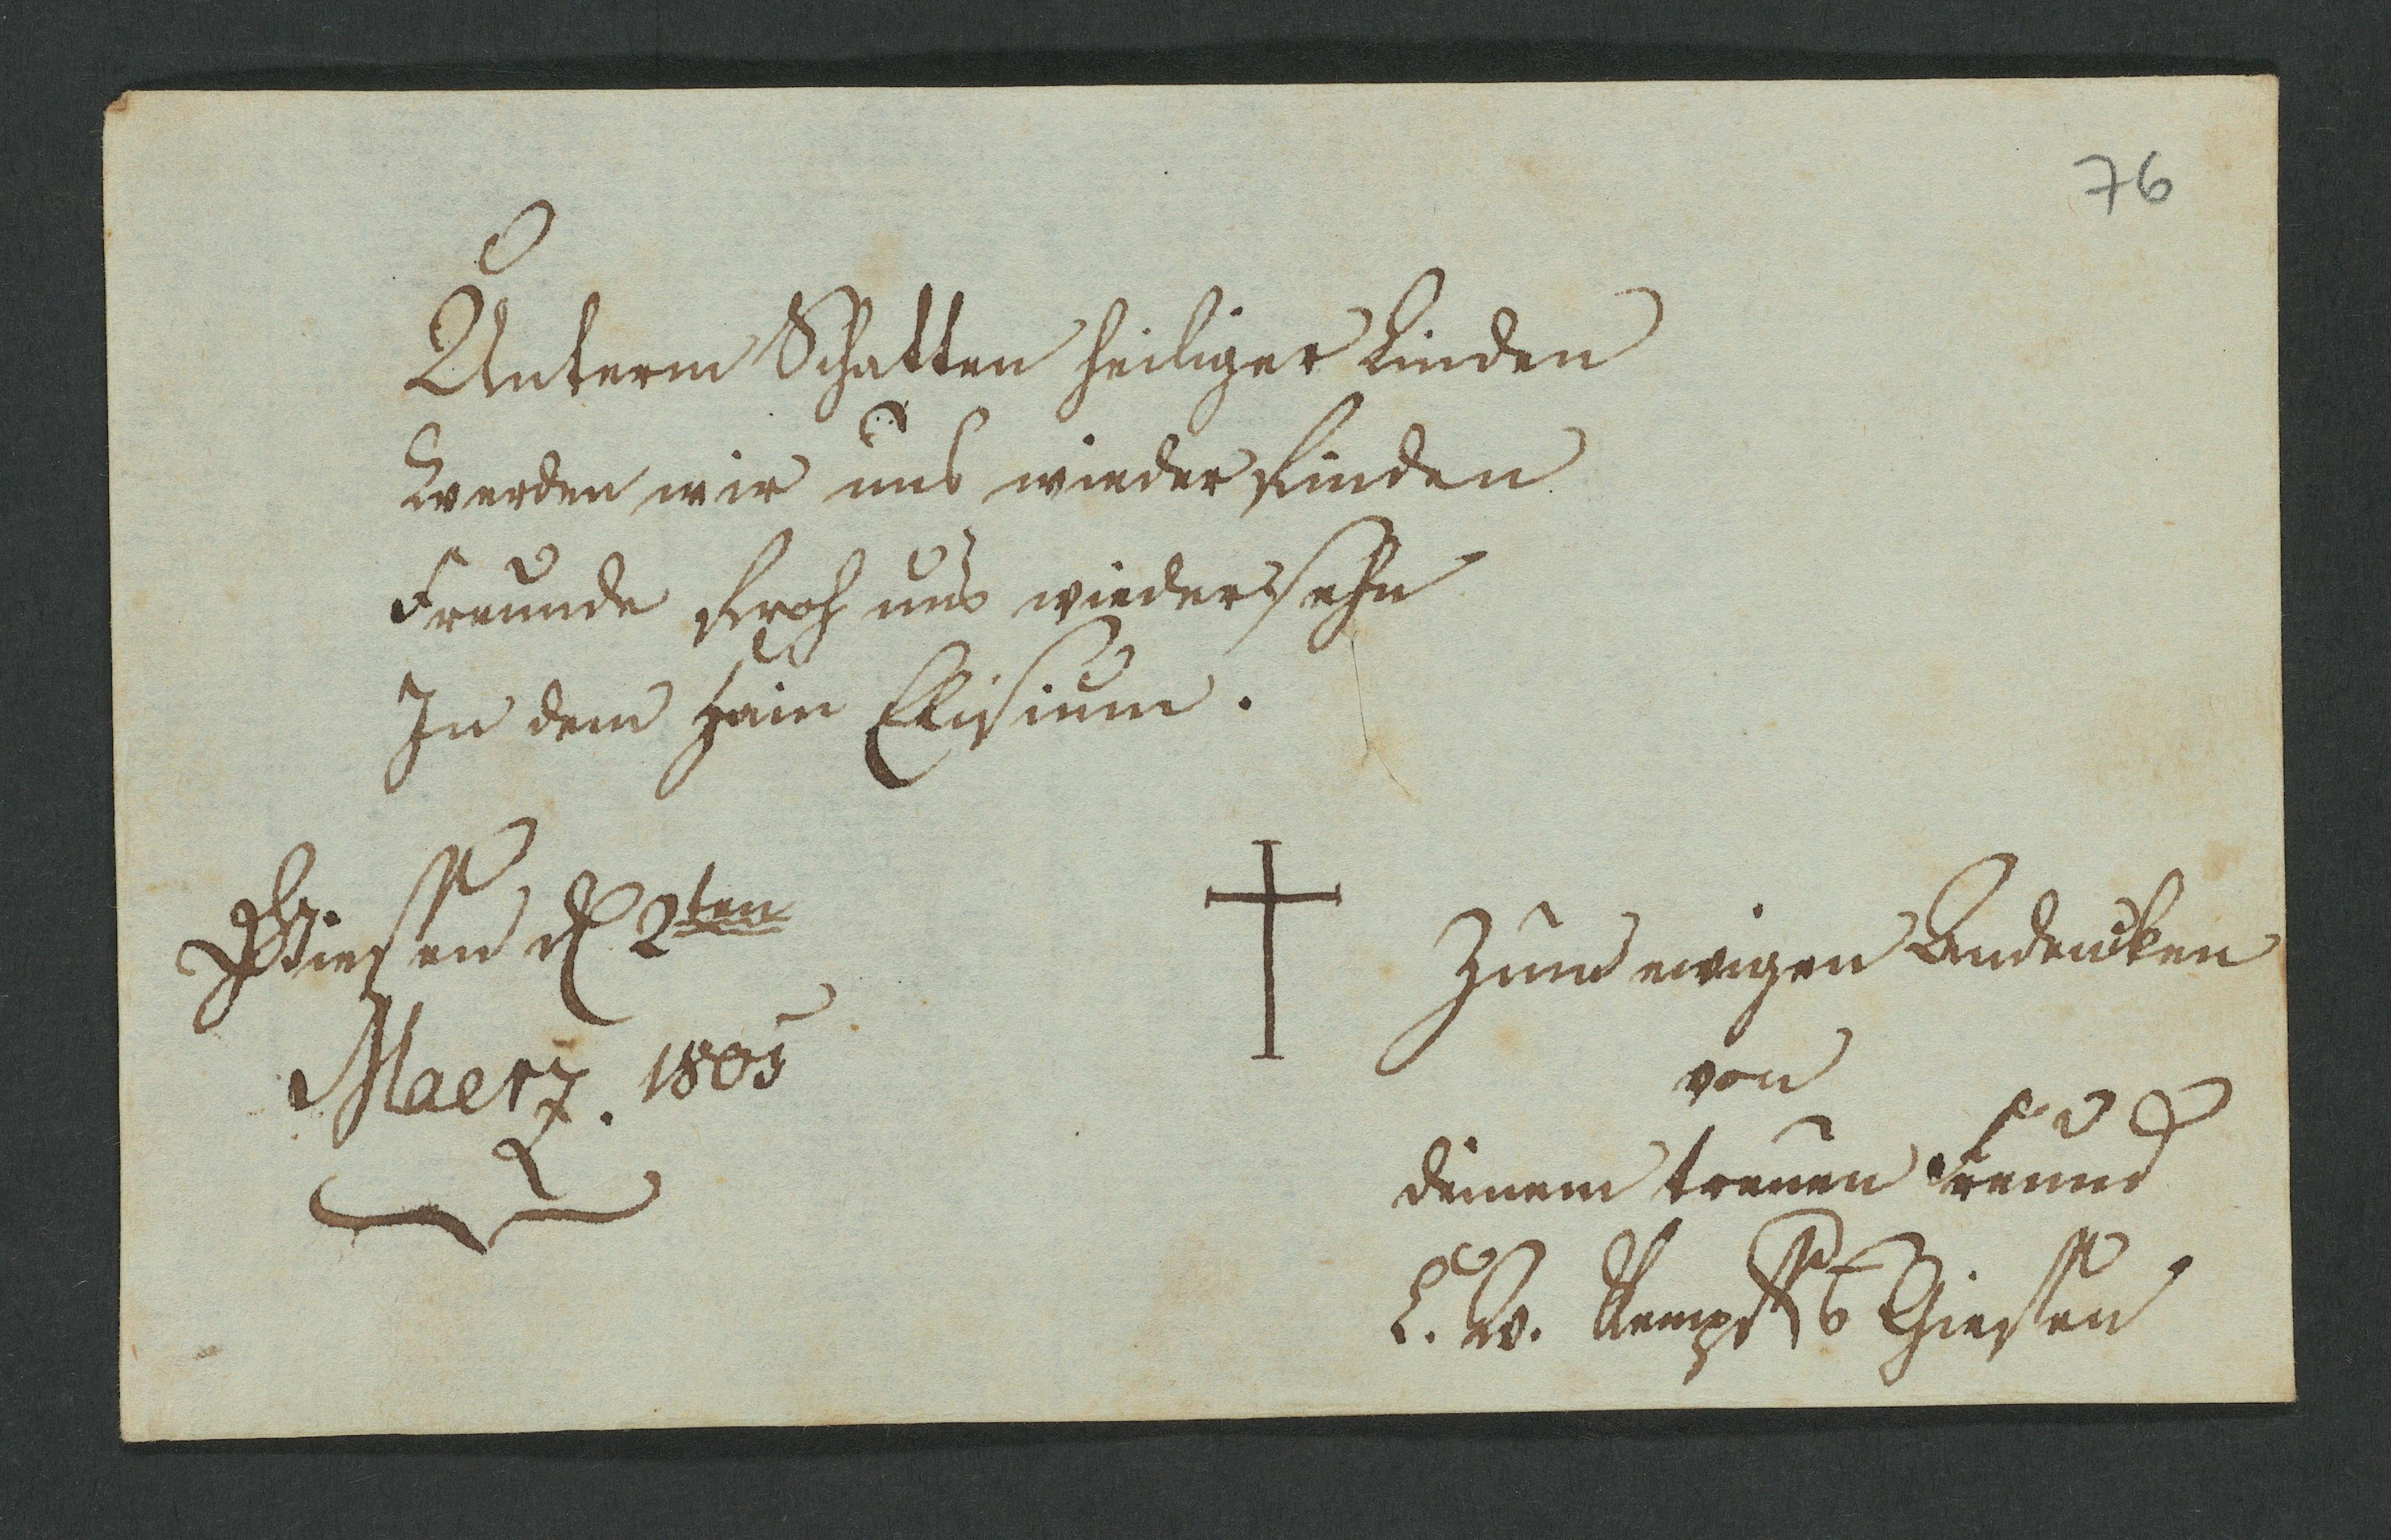 76
Unterm Schatten heiliger Linden
Werden wir uns wieder finden
Freunde froh uns wiedersehn
In dem Hain Elisium.
Giessen d. 2ten
Maerz. 1805
Zum ewigen Andencken
von
deinem treuen Freund
L. W. Giessen